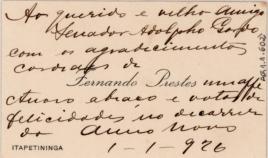 Ao querido e velho Amigo
Senador Adolpho Gordo
com os agradecimentos
cordiaes de
Fernando Prestes
abraço e votos de
felicidades no decorrer
do Anno Novo
ITAPETININGA
1-1-926